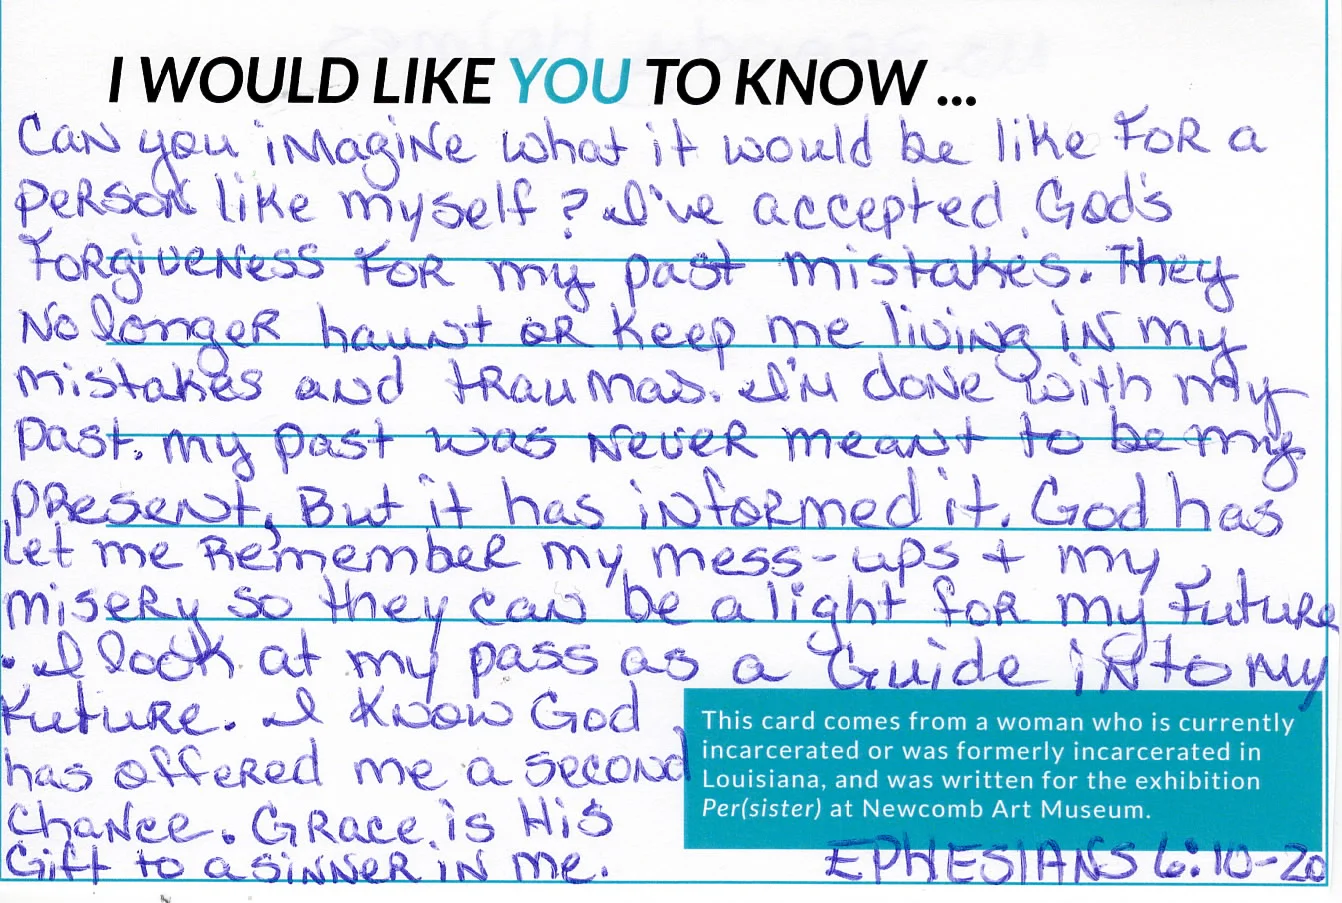 I WOULD LIKE YOU TO KNOW ...
Can you imagine what it would be like for a
person like myself? I've accepted God's
forgiveness for my past mistakes. They
no longer haunt or keep me living in my
mistakes and traumas. I'm done with my
past. my past was never meant to be my
present, But it has informed it. God has
let me remember my mess-ups + my
misery so they can be a light for my future
. I look at my pass as a Guide into my
future. I know God
has offered me a second
chance. Grace is His
Gift to a sinner in me.
This card comes from a woman who is currently
incarcerated or was formerly incarcerated in
Louisiana, and was written for the exhibition
Per(sister) at Newcomb Art Museum.
EPHESIANS 6:10-20